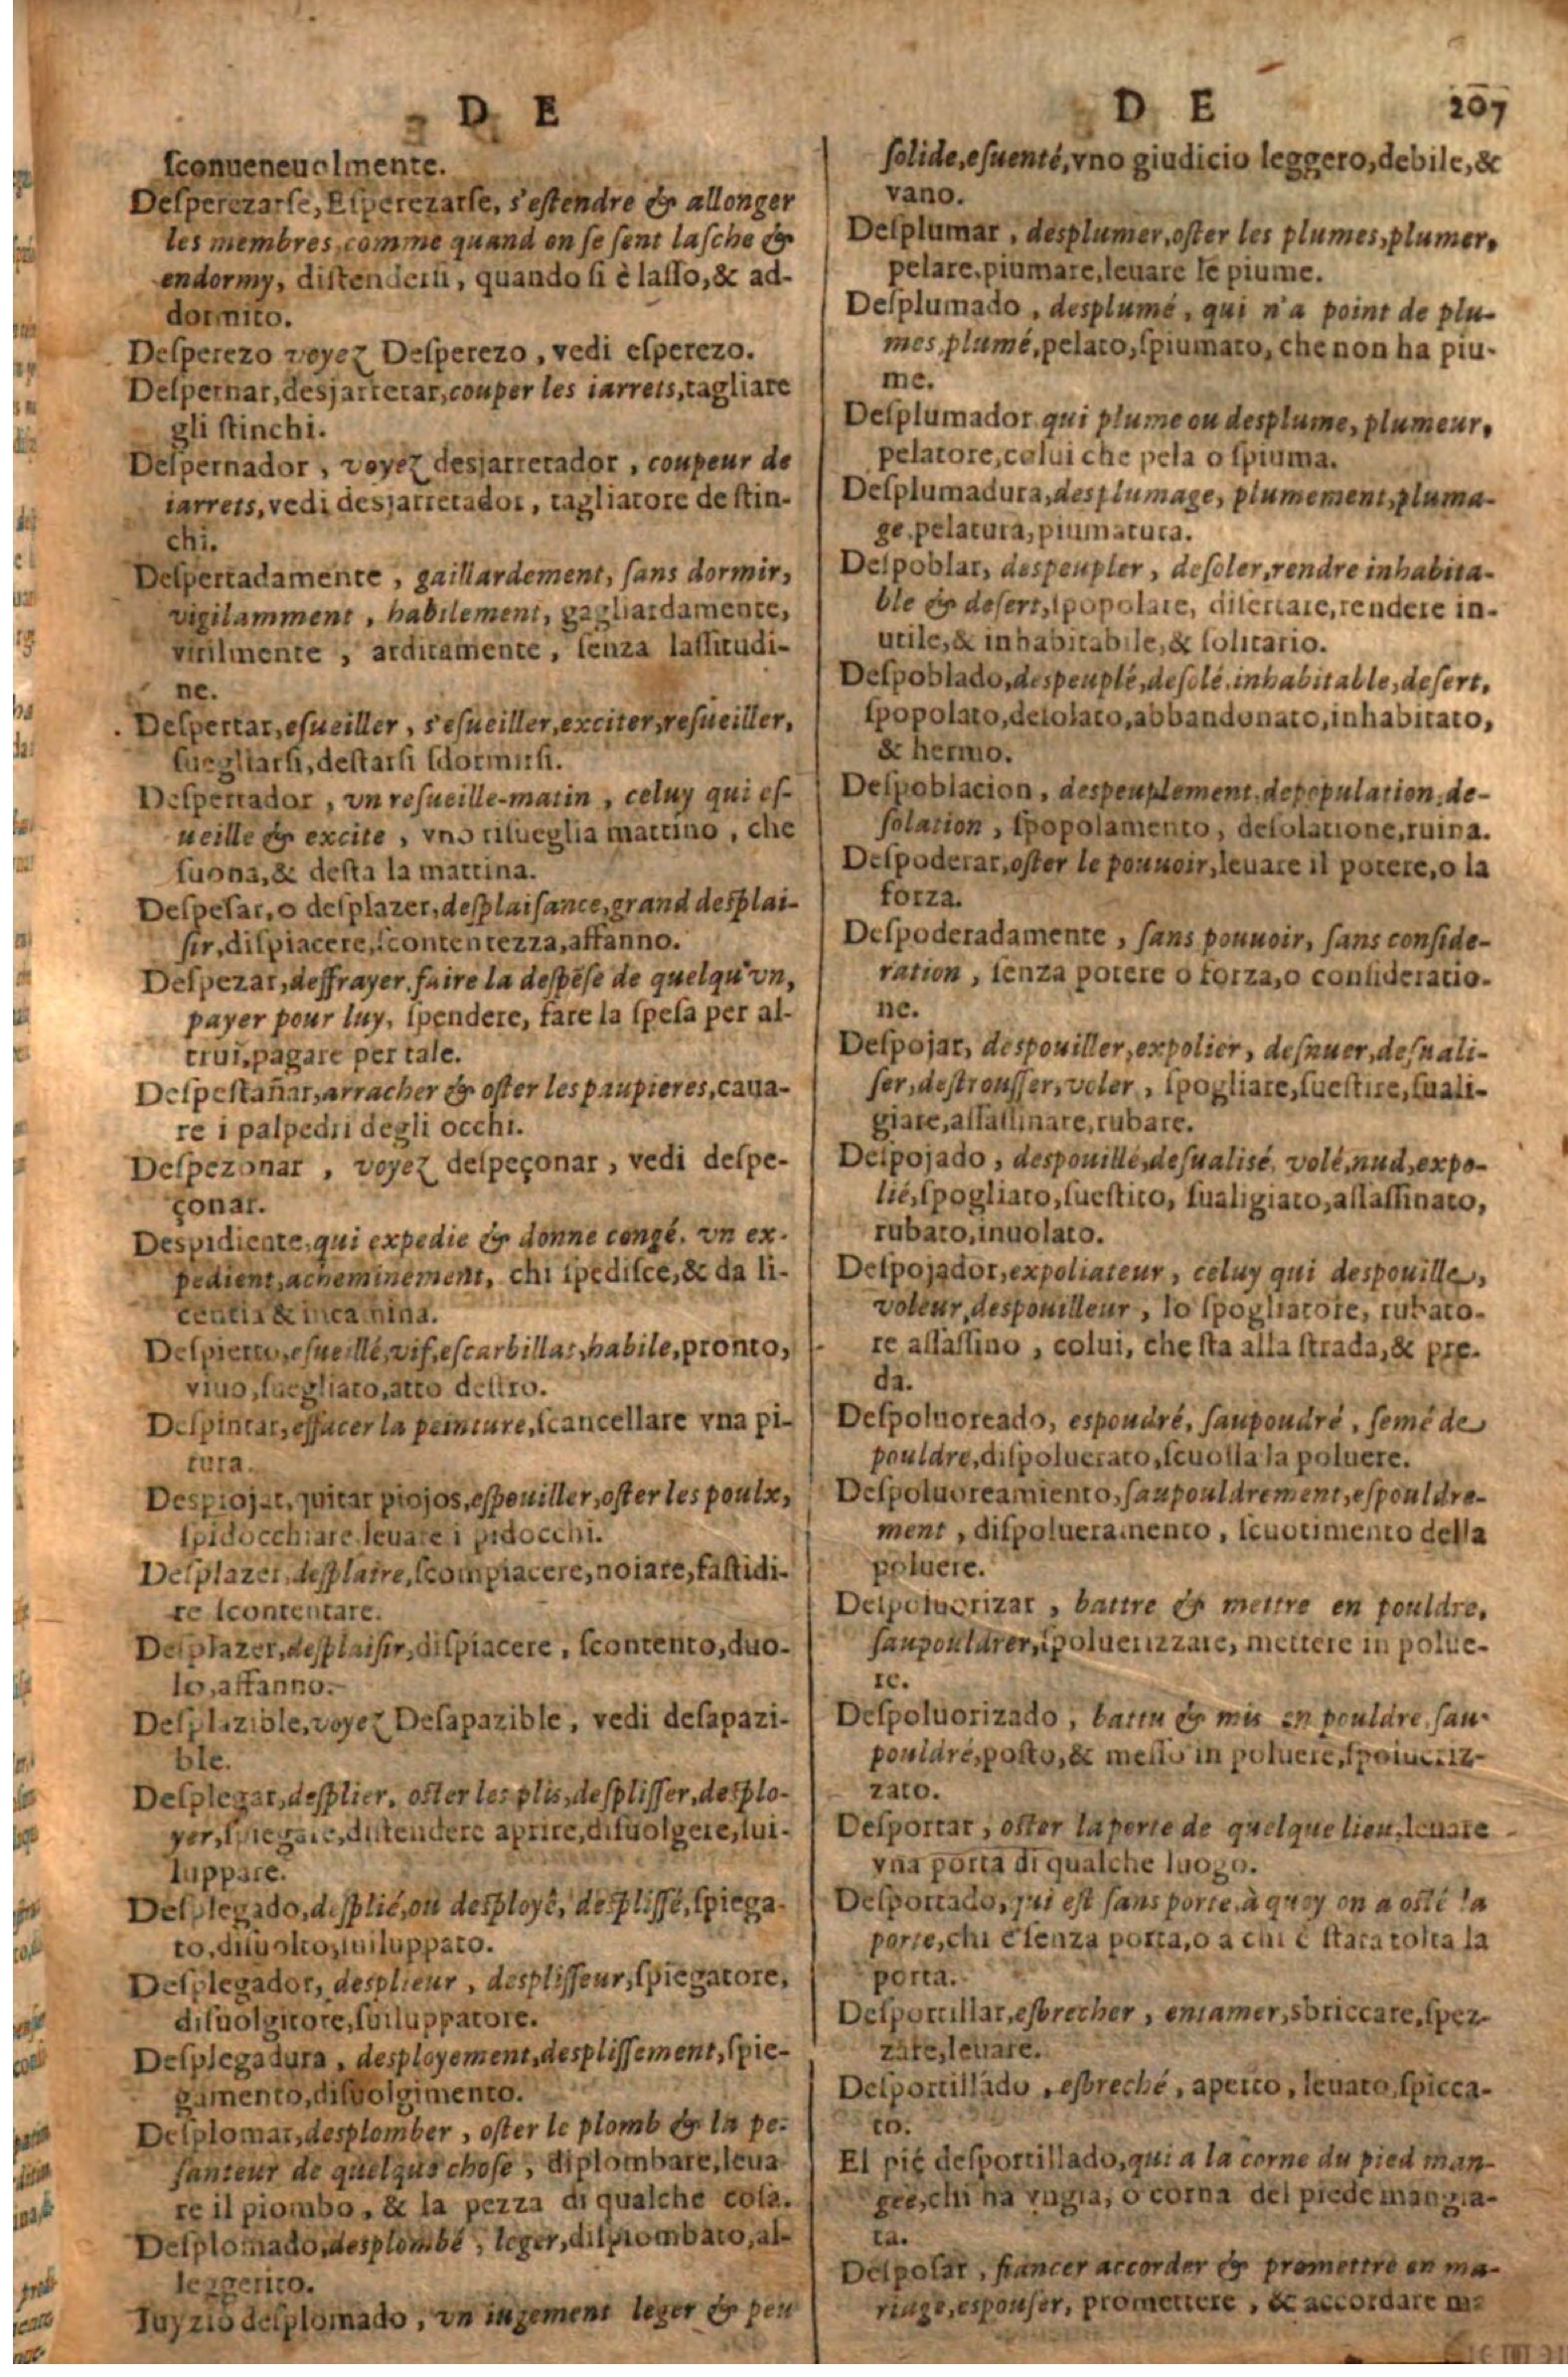 D E
ſconueneuolmente.
Deſperezarſe, Eſperezarſe, s'eſtendre & allonger
les membres, comme quand on ſe ſent laſche &
endormy, diſtenderſi, quando ſi è laſſo, & ad-
dormito.
Deſperezo voyez Deſperezo, vedi eſperezo.
Deſpernar, desjarretar, couper les iarrets, tagliare
gli ſtinchi.
Deſpernador, voyez desjarretador, coupeur de
iarrets, vedi desjarretador, tagliatore de ſtin-
chi.
Deſpertadamente, gaillardement, ſans dormir,
vigilamment, habilement, gagliardamente,
virilmente, arditamente, ſenza laſſitudi-
ne.
Deſpertar, eſueiller, s'eſueiller, exciter, reſueiller,
ſuegliarſi, deſtarſi ſdormirſi.
Deſpertador, vn reſueille-matin, celuy qui eſ-
ueille & excite, vno riſueglia mattino, che
ſuona, & deſta la mattina.
Deſpeſar, o deſplazer, deſplaiſance, grand deſplai-
ſir, diſpiacere, ſcontentezza, affanno.
Deſpezar, deffrayer, faire la deſpẽſe de quelqu'vn,
payer pour luy, ſpendere, fare la ſpeſa per al-
trui, pagare per tale.
Deſpeſtañar, arracher & oſter les paupieres, caua-
re i palpedri degli occhi.
Deſpezonar, voyez deſpeçonar, vedi deſpe-
çonar.
Despidiente, qui expedie & donne congé, vn ex-
pedient, acheminement, chi ſpediſce, & da li-
centia & incamina.
Deſpierto, eſueillé, vif, eſcarbillat, habile, pronto,
viuo, ſuegliato, atto deſtro.
Deſpintar, effacer la peinture, ſcancellare vna pi-
tura.
Despiojar, quitar piojos, eſpouiller, oſter les poulx,
ſpidocchiare leuare i pidocchi.
Deſplazer, deſplaire, ſcompiacere, noiare, faſtidi-
re ſcontentare.
Deſplazer, deſplaiſir, diſpiacere, ſcontento, duo-
lo, affanno.
Deſplazible, voyez Deſapazible, vedi deſapazi-
ble.
Deſplegar, deſplier, oſter les plis, deſpliſſer, deſplo-
yer, ſpiegare, diſtendere aprire, diſuolgere, ſui-
luppare.
Deſplegado, deſplié, ou desployé, deſpliſſé, ſpiega-
to, diſuolto, ſuiluppato.
Deſplegador, desplieur, despliſſeur, ſpiegatore,
diſuolgitore, ſuiluppatore.
Deſplegadura, desployement, despliſſement, ſpie-
gamento, diſuolgimento.
Deſplomar, desplomber, oſter le plomb & la pe-
ſanteur de quelque choſe, diplombare, leua
re il piombo, & la pezza di qualche coſa.
Deſplomado, desplombé, leger, diſpiombato, al-
leggerito.
Iuyzio deſplomado, vn iugement leger & peu
D E 207
ſolide, eſuenté, vno giudicio leggero, debile, &
vano.
Deſplumar, desplumer, oſter les plumes, plumer,
pelare, piumare, leuare le piume.
Deſplumado, desplumé, qui n'a point de plu-
mes, plumé, pelato, ſpiumato, che non ha piu-
me.
Deſplumador qui plume ou desplume, plumeur,
pelatore, colui che pela o ſpiuma.
Deſplumadura, desplumage, plumement, pluma-
ge, pelatura, piumatura.
Deſpoblar, despeupler, deſoler, rendre inhabita-
ble & deſert, ſpopolare, diſertare, rendere in-
utile, & inhabitabile, & ſolitario.
Deſpoblado, despeuplé, deſolé, inhabitable, deſert,
ſpopolato, deſolato, abbandonato, inhabitato,
& hermo.
Deſpoblacion, despeuplement, depopulation, de-
ſolation, ſpopolamento, deſolatione, ruina.
Deſpoderar, oſter le pouuoir, leuare il potere, o la
forza.
Deſpoderadamente, ſans pouuoir, ſans conſide-
ration, ſenza potere o forza, o conſideratio-
ne.
Deſpojar, despouiller, expolier, deſnuer, deſuali-
ſer, destrouſſer, voler, ſpogliare, ſueſtire, ſuali-
giare, aſſaſſinare, rubare.
Deſpojado, despouillé, deſualisé, volé, nud, expo-
lié, ſpogliato, ſueſtito, ſualigiato, aſſaſſinato,
rubato, inuolato.
Deſpojador, expoliateur, celuy qui despouille,
voleur, despouilleur, lo ſpogliatore, rubato-
re aſſaſſino, colui, che ſta alla ſtrada, & pre-
da.
Deſpoluoreado, espoudré, ſaupoudré, ſemé de
pouldre, diſpoluerato, ſcuoſſa la poluere.
Deſpoluoreamiento, ſaupouldrement, eſpouldre-
ment, diſpolueramento, ſcuotimento della
poluere.
Deſpoluorizar, battre & mettre en pouldre,
ſaupouldrer, ſpoluerizzare, mettere in polue-
re.
Deſpoluorizado, battu & mis en pouldre, ſau-
pouldré, poſto, & meſſo in poluere, ſpolueriz-
zato.
Deſportar, oſter la porte de quelque lieu, leuare
vna porta di qualche luogo.
Deſportado, qui eſt ſans porte, à quoy on a oſté la
porte, chi è ſenza porta, o a chi è ſtata tolta la
porta.
Deſportillar, eſbrecher, entamer, sbriccare, ſpez-
zare, leuare.
Deſportillado, eſbreché, aperto, leuato, ſpicca-
to.
El pié deſportillado, qui a la corne du pied man-
gée, chi ha vngia, o corna del piede mangia-
ta.
Deſpoſar, fiancer accorder & promettre en ma-
riage, espouſer, promettere, & accordare